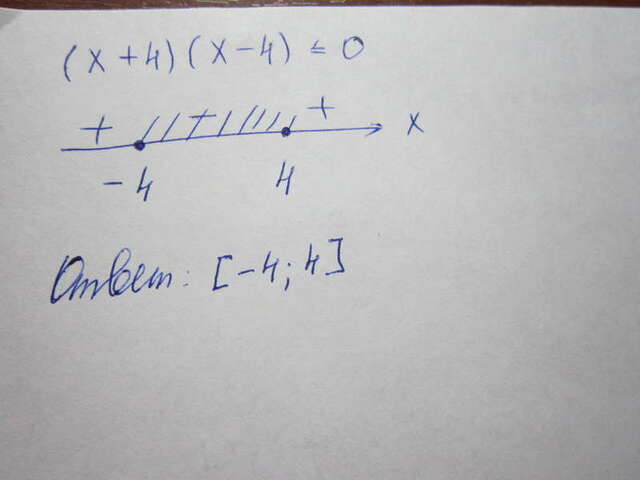 (x+4)(x-4) ≤ 0
+ + + x
-4 4
Ответ: [-4; 4]